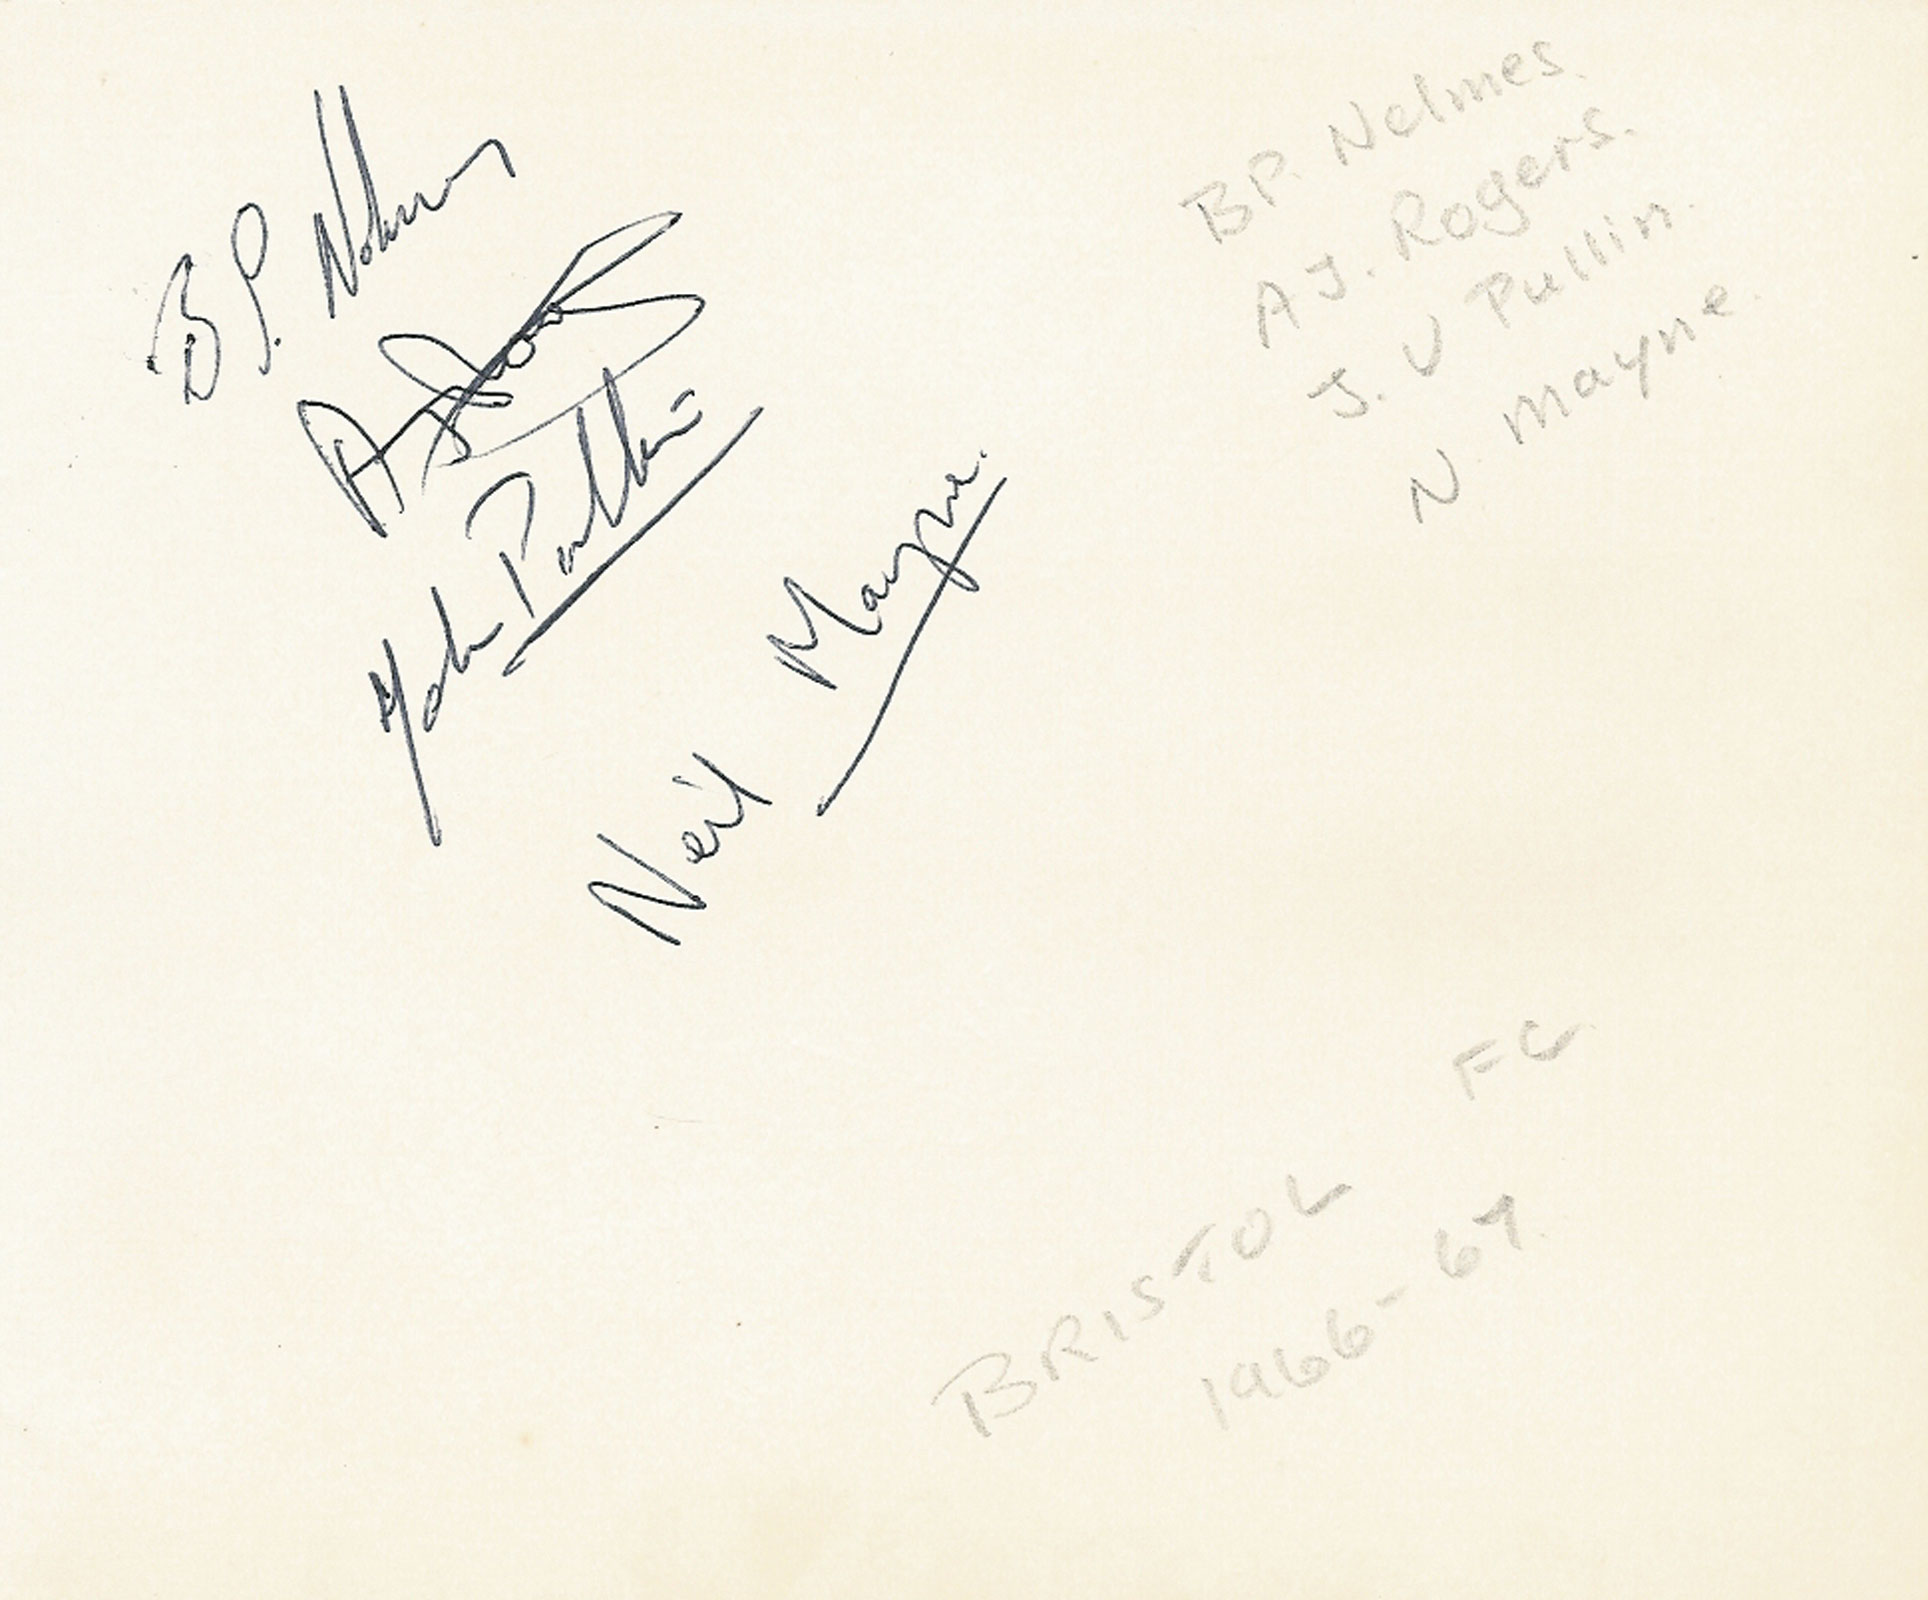 B.P. Nelmes
A J Rogers
John Pullin
Neil Mayne.
B P. Nelmes.
A J. Rogers.
J. V Pullin.
N Mayne.
BRISTOL FC
1966-67.